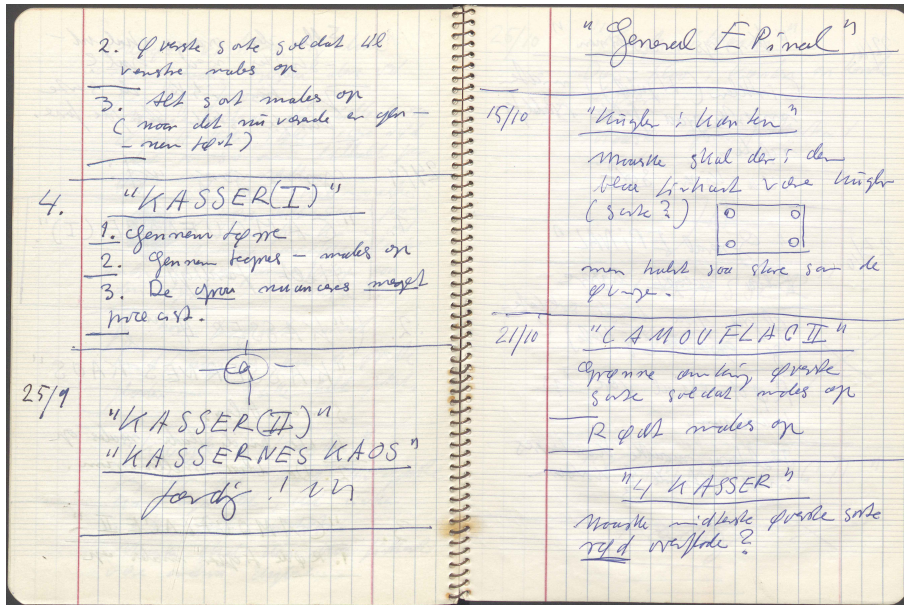 2. Øverste sorte soldat til
venstre males op
3. Alt sort males op
(naar det nu værende er gen-
- nem tørt)
4. "KASSER(I)"
1. Gennem tørre
2. Gennem tegnes - males op
3. De graa nuanceres meget
præcist.
25/9
"KASSER(II)"
"KASSERNES KAOS"
færdig!
"General EPinal"
15/10 "Kugler i Kanten"
maaske skal der i den
blaa Kant være Kugler
(sorte?)
men helst saa store som de
øvrige.
21/10 "CAMOUFLAGE II"
Grønne omkring øverste
sorte soldat males op
Rødt males op
"4 KASSER"
maaske midterste øverste sorte
rød overflade?